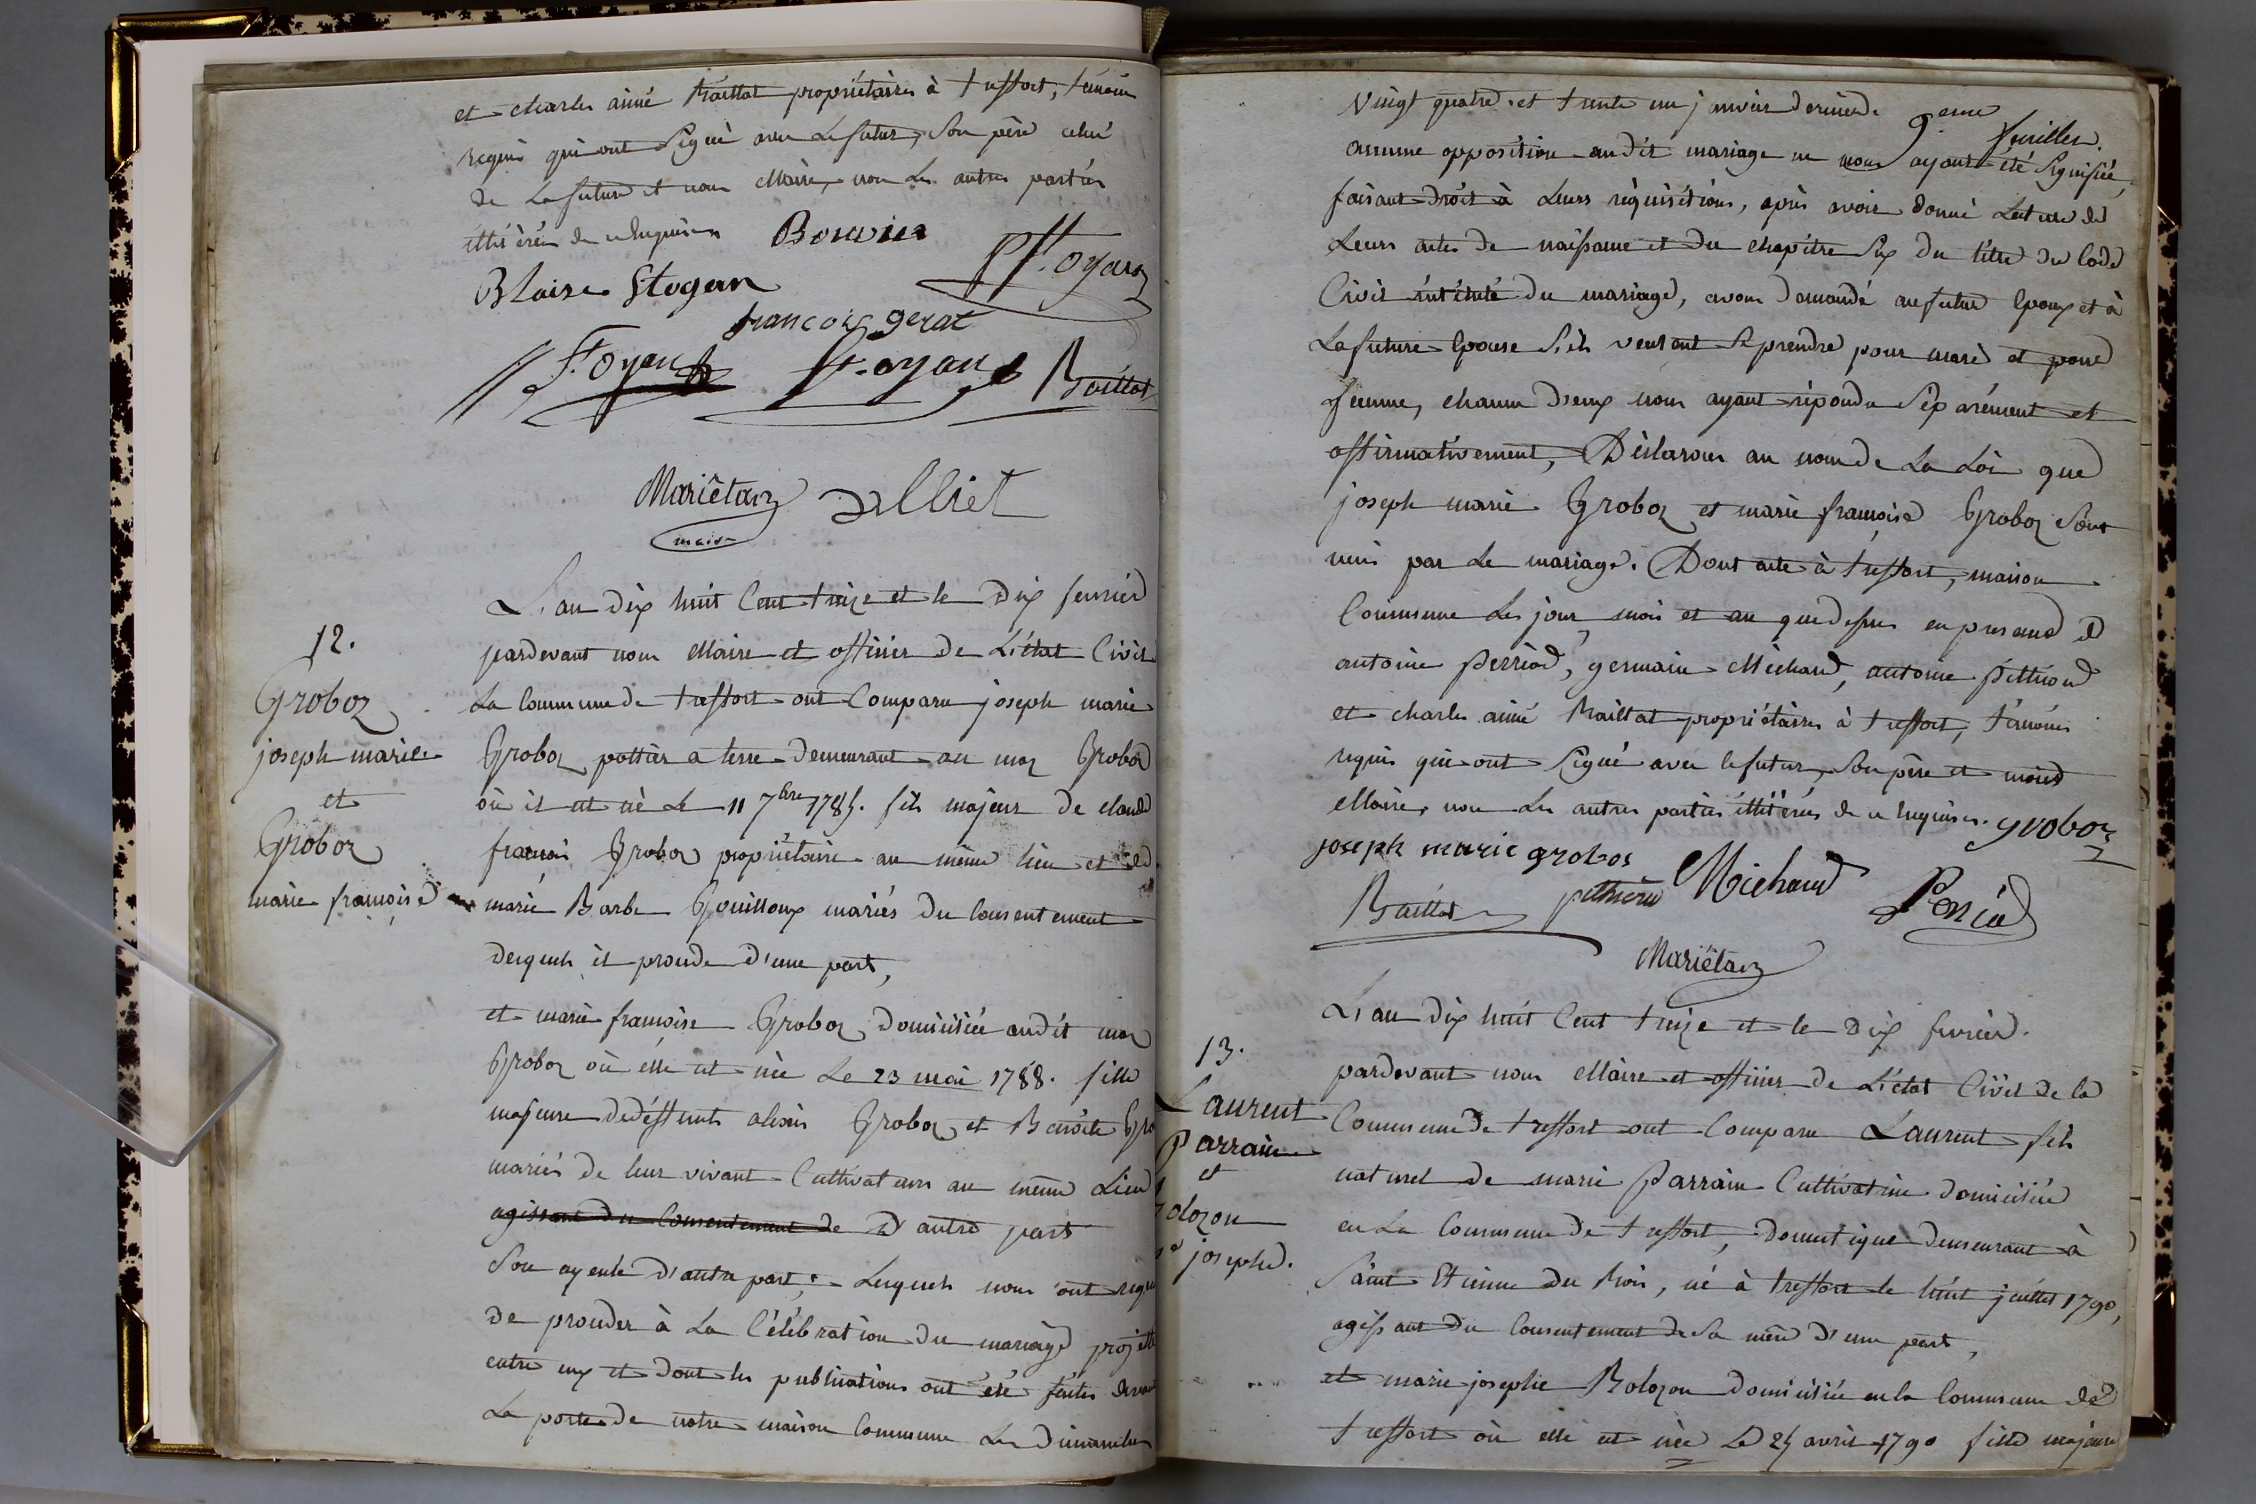 et charles aimé Raillat propriétaires à treffort, témoins
requis qui ont signé avec le futur, son père celui
de la future et nous Maire, non les autres parties
illitérées de ce Enquises
Bouvier
St. oyan
Blaise Stogan
francois gerat
St. oyan
St. oyan
Raillat
Mariétan
maire
L'an dix huit cent treize et le dix fevrier
pardevant nous Maire et officier de l'état Civil
la Commune de treffort ont Comparu joseph marie
Groboz pottier a terre demeurant au maz Groboz
où il est né le 11 7bre 1785. fils majeur de claude
francois Groboz propriétaire au même lieu et de
marie Barbe Gouilloux mariés du consentement
desquels il procede d'une part,
et marie francoise Groboz domiciliée audit maz
Groboz où elle est née le 23 mai 1788. fille
majeure de deffunts alexis Groboz et Benoite Gro
mariés de leur vivant Cultivateurs au même Lieu
agissant du Consentement de D'autre part
Son ayeule d'autre part; Lesquels nous ont requi
de proceder à la Célébration du mariage projetté
entre eux et dont les publications ont été faites devant
La porte de notre maison Commune Les Dimanches
12.
Groboz
joseph marie
et
Groboz
marie francoise
9eme feuillet.
vingt quatre et trente un janvier dernier
aucune opposition audit mariage ne nous ayant été Signifiée,
faisant droit à Leurs réquisitions, après avoir donné Lecture de
Leurs actes de naissance et du chapitre Six du titre du Code
Civil intitulé du mariage, avons demandé au futur Epoux et à
La future Epouse S'ils veulent se prendre pour mari et pour
femme, chacun d'eux nous ayant répondu Séparément et
affirmativement, Déclarons au nom de La Loi que
joseph marie Groboz et marie francoise Groboz Sont
unis par Le mariage. Dont acte à treffort, maison
Commune Les jour, mois et an que dessus en presence de
antoine perriod, germain Michaud, antoine pithioud
et charles aimé Raillat propriétaires à treffort, témoins
requis qui ont Signé avec le futur, Son père et nous
Maire, non Les autres parties illitérées de ce Enquises. groboz
joseph marie grobos
Raillat
Michaud
Mariétan
L'an dix huit Cent treize et le Dix fevrier.
pardevant nous Maire et officier de L'état Civil de la
Commune de treffort ont Comparu Laurent fils
naturel de marie Parrain Cultivatrice domiciliée
en La Commune de treffort, Domestique demeurant à
Saint Etienne du Bois, né à treffort le huit juillet 1790,
agissant du Consentement de Sa mère d'une part,
et marie josephe Bolozon domiciliée en la Commune de
treffort où elle est née Le 25 avril 1790 fille majeure
13.
Laurent
Parrain
et
olozon
josephe.